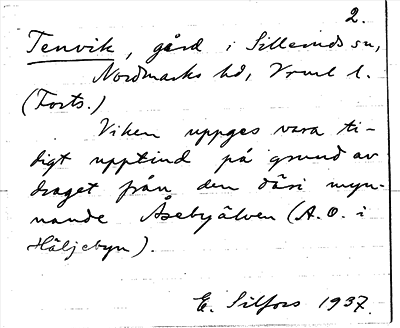 2.
Tenvik, gård i Silleruds sn,
Nordmarks hd, Vrml l.
(Forts.)
Viken uppges vara ti-
digt upptinad på grund av
draget från den däri myn-
nande Åsebyälven (A. O. i
Häljebyn).
E. Silfors 1937.